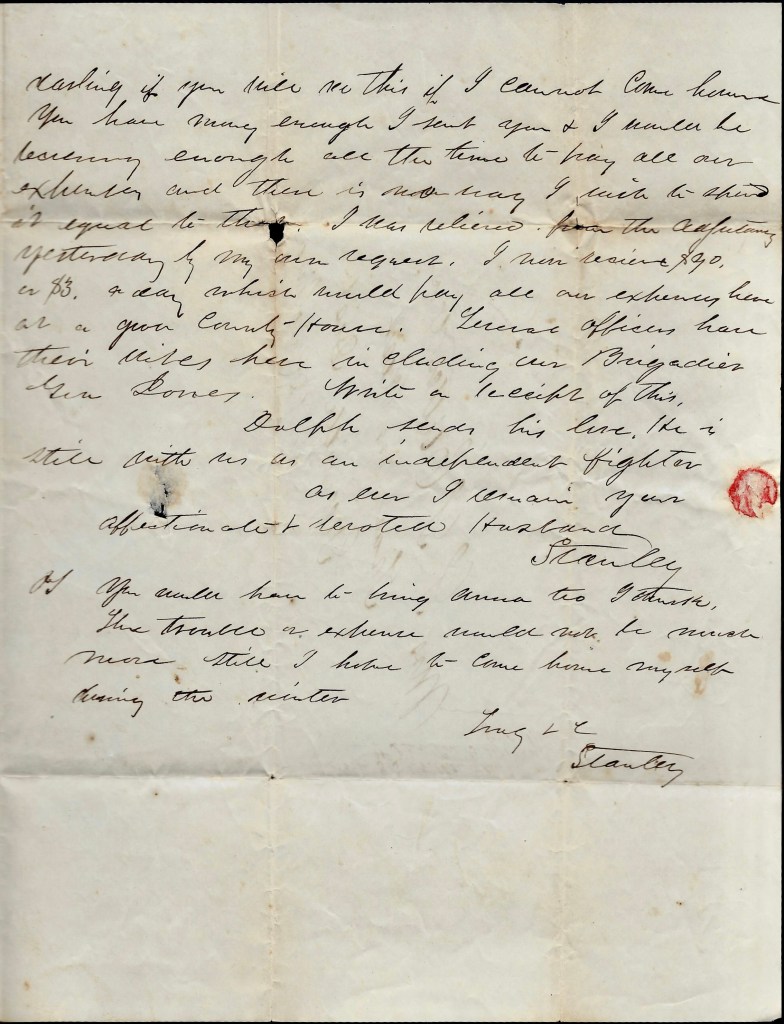 darling if you will see this if I cannot Come home
You have money enough I sent you & I would be
receiving enough all the time to pay all our
expenses and there is no way I wish to spend
it equal to this. I was relieved from the Adjutancy
yesterday by my own request. I now receive $90.
or $3. a day which would pay all our expenses here
at a good County-House. Several officers have
their wives here including our Brigadier
Gen Jones. Write on receipt of this.
Dolph sends his love. He is
still with us as an independent fighter
as ever I remain your
affectionate & devoted Husband
Stanley
PS You would have to bring Anna too I think.
The trouble or expense would not be much
more still I hope to come home myself
during the winter
Truly &c
Stanley